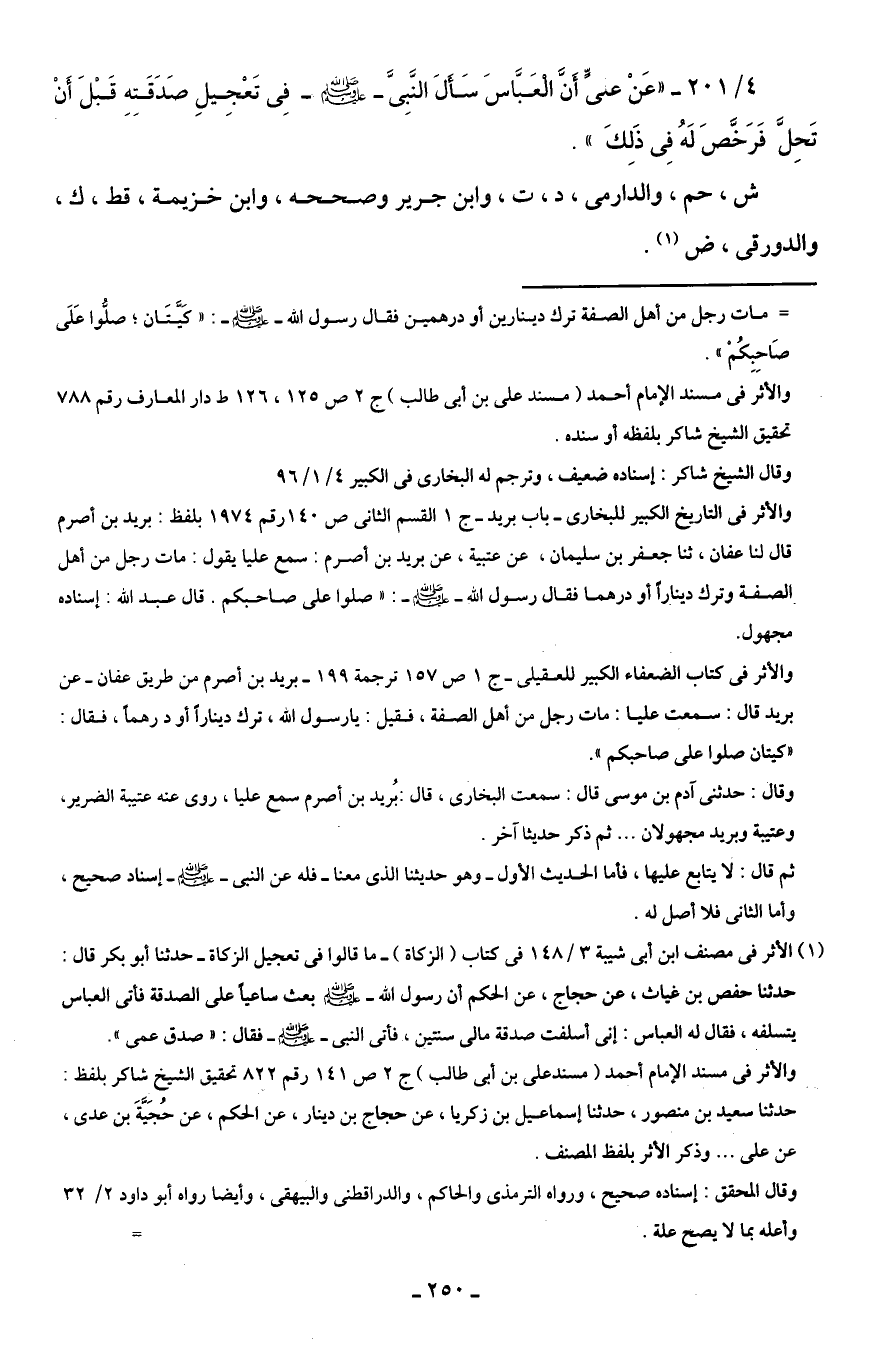 ٤/ ٢٠١ ـ «عَنْ عَلىٍّ أَنَّ الْعَبَّاسَ سَأَلَ النَّبِىَّ ـ ﷺ ـ فِى تَعْجِيلِ صَدَقَتِهِ قَبْلَ أَنْ
تَحِلَّ فَرَخَّصَ لَهُ فِى ذَلِكَ » .
ش ، حم ، والدارمى ، د ، ت ، وابن جرير وصححه ، وابن خزيمة ، قط ، ك ،
والدورقى ، ض (١) .
= مات رجل من أهل الصفة ترك دينارين أو درهمين فقال رسول الله ـ ﷺ ـ : « كَيَّتَان ؛ صلُّوا عَلَى
صَاحِبِكُمْ » .
والأثر فى مسند الإمام أحمد ( مسند على بن أبى طالب ) ج ٢ ص ١٢٥ ، ١٢٦ ط دار المعارف رقم ٧٨٨
تحقيق الشيخ شاكر بلفظه أو سنده .
وقال الشيخ شاكر : إسناده ضعيف ، وترجم له البخارى فى الكبير ٤/ ١/ ٩٦
والأثر فى التاريخ الكبير للبخارى ـ باب بريد ـ ج ١ القسم الثانى ص ١٤٠ رقم ١٩٧٤ بلفظ : بريد بن أصرم
قال لنا عفان ، ثنا جعفر بن سليمان ، عن عتيبة ، عن بريد بن أصرم : سمع عليا يقول : مات رجل من أهل
الصفة وترك ديناراً أو درهما فقال رسول الله ـ ﷺ ـ : « صلوا على صاحبكم . قال عبد الله : إسناده
مجهول.
والأثر فى كتاب الضعفاء الكبير للعقيلى ـ ج ١ ص ١٥٧ ترجمة ١٩٩ ـ بريد بن أصرم من طريق عفان ـ عن
بريد قال : سمعت عليا : مات رجل من أهل الصفة ، فقيل : يارسول الله ، ترك ديناراً أو درهماً ، فقال :
«كيتان صلوا على صاحبكم ».
وقال : حدثنى آدم بن موسى قال : سمعت البخارى ، قال :بُريد بن أصرم سمع عليا ، روى عنه عتيبة الضرير،
وعتيبة وبريد مجهولان ... ثم ذكر حديثا آخر .
ثم قال : لا يتابع عليها ، فأما الحديث الأول ـ وهو حديثنا الذى معنا ـ فله عن النبى ـ ﷺ ـ إسناد صحيح ،
وأما الثانى فلا أصل له .
(١) الأثر فى مصنف ابن أبى شيبة ٣/ ١٤٨ فى كتاب ( الزكاة ) ـ ما قالوا فى تعجيل الزكاة ـ حدثنا أبو بكر قال :
حدثنا حفص بن غياث ، عن حجاج ، عن الحكم أن رسول الله ـ ﷺ بعث ساعياً على الصدقة فأتى العباس
يتسلفه ، فقال له العباس : إنى أسلفت صدقة مالى سنتين ، فأتى النبى ـ ﷺ ـ فقال : « صدق عمى ».
والأثر فى مسند الإمام أحمد ( مسندعلى بن أبى طالب ) ج ٢ ص ١٤١ رقم ٨٢٢ تحقيق الشيخ شاكر بلفظ :
حدثنا سعيد بن منصور ، حدثنا إسماعيل بن زكريا ، عن حجاج بن دينار ، عن الحكم ، عن حُجَيَّةَ بن عدى ،
عن على ... وذكر الأثر بلفظ المصنف .
وقال المحقق : إسناده صحيح ، ورواه الترمذى والحاكم ، والدراقطنى والبيهقى ، وأيضا رواه أبو داود ٢/ ٣٢
وأعله بما لا يصح علة . =
ـ ٢٥٠ ـ